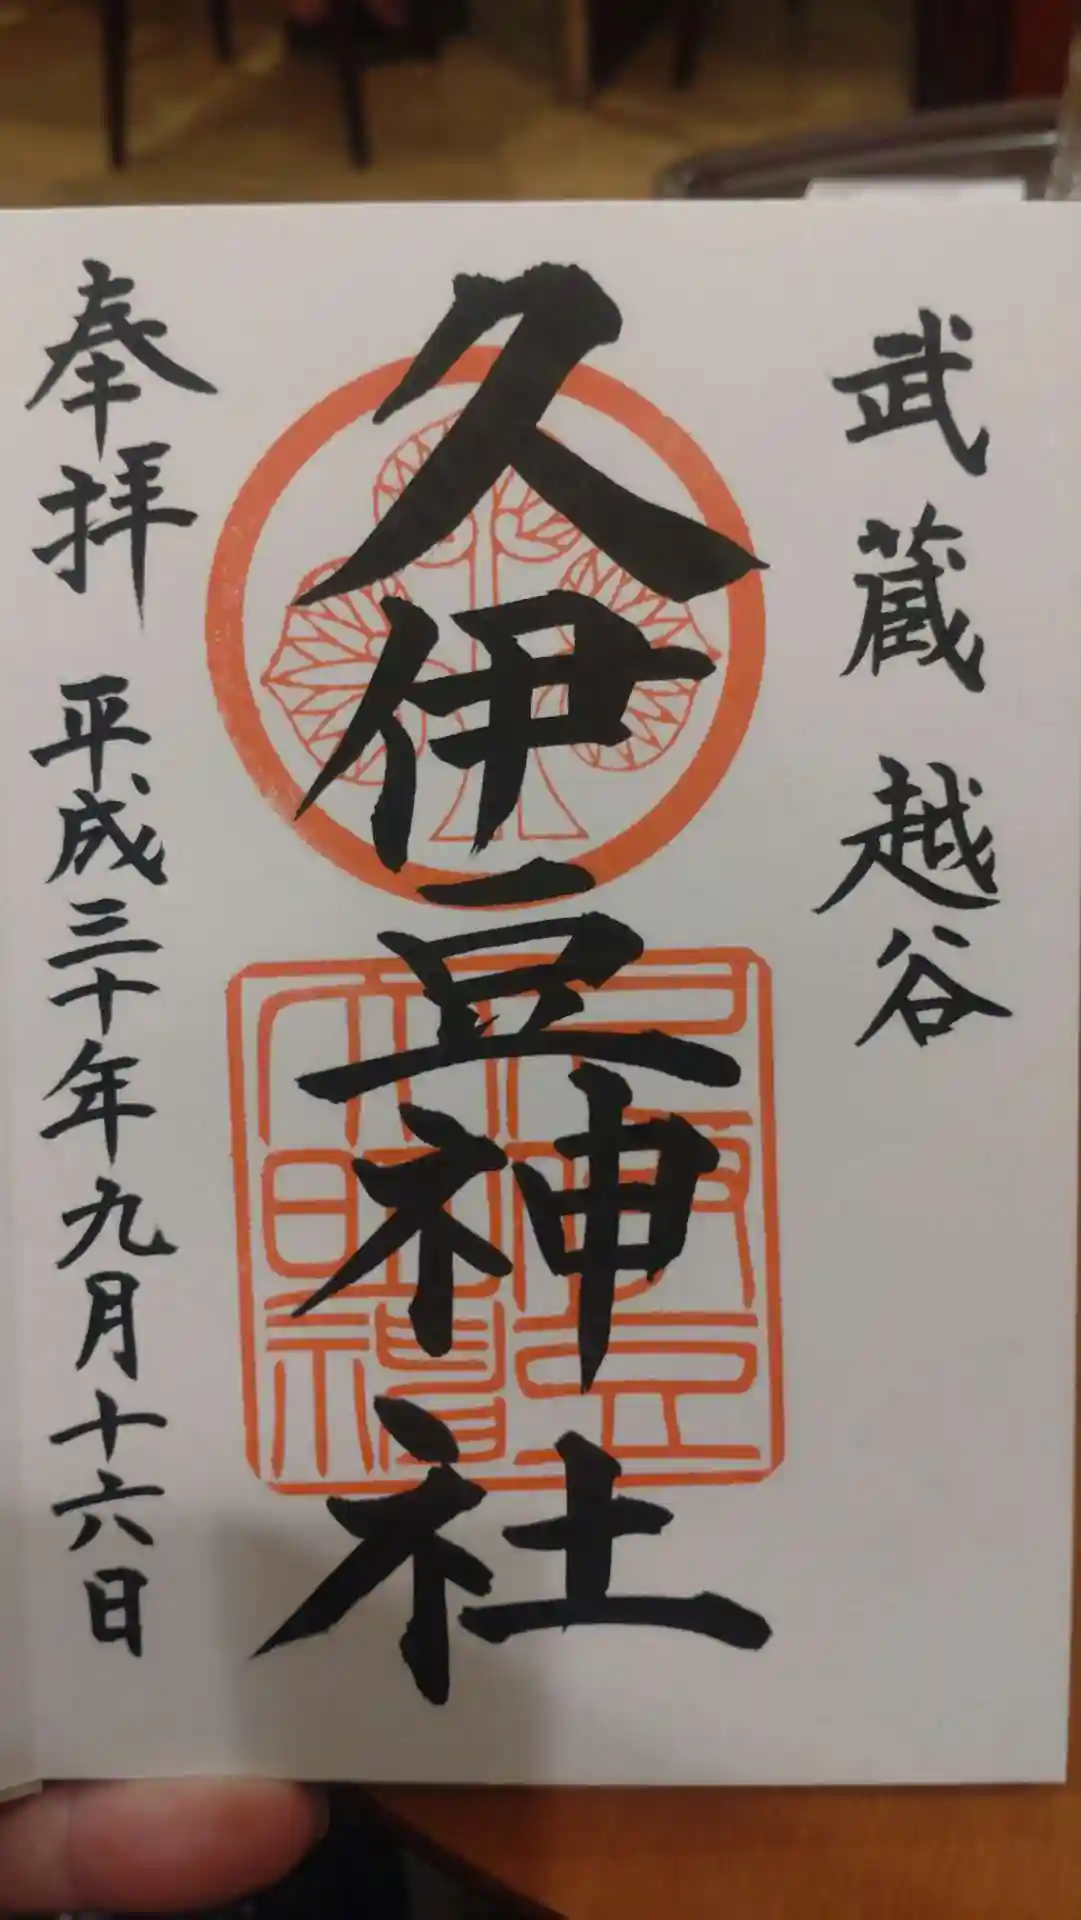 武蔵 越谷
久伊豆神社
奉拝 平成三十年九月十六日